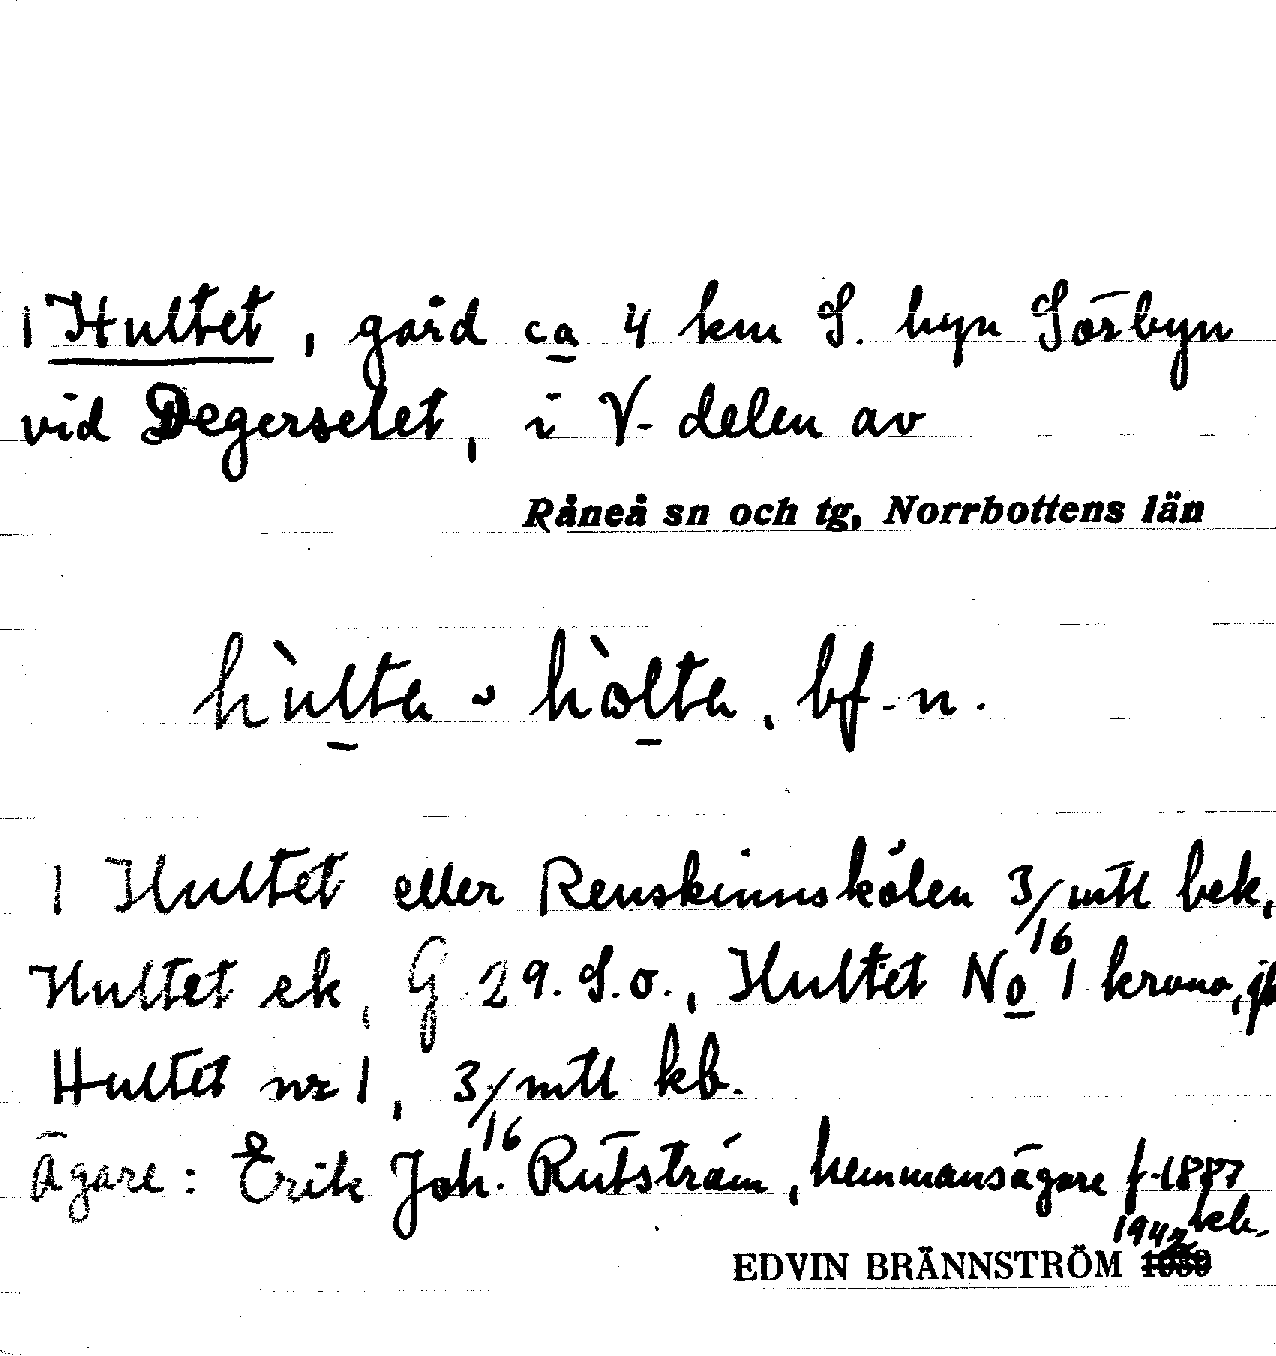 1 Hultet, gård ca 4 km S. byn Sörbyn
vid Degerselet, i V- delen av
Råneå sn och tg, Norrbottens län
hùlta ᴗ hòlta, bf. n.
1 Hultet eller Renskinnskölen 3/16 mtl bek,
Hultet ek, G 29. S.o., Hultet No 1 krono, jb
Hultet nr 1, 3/16 mtl kb.
Ägare: Erik Joh. Rutström, hemmansägare f. 1887
kb.
EDVIN BRÄNNSTRÖM 1942